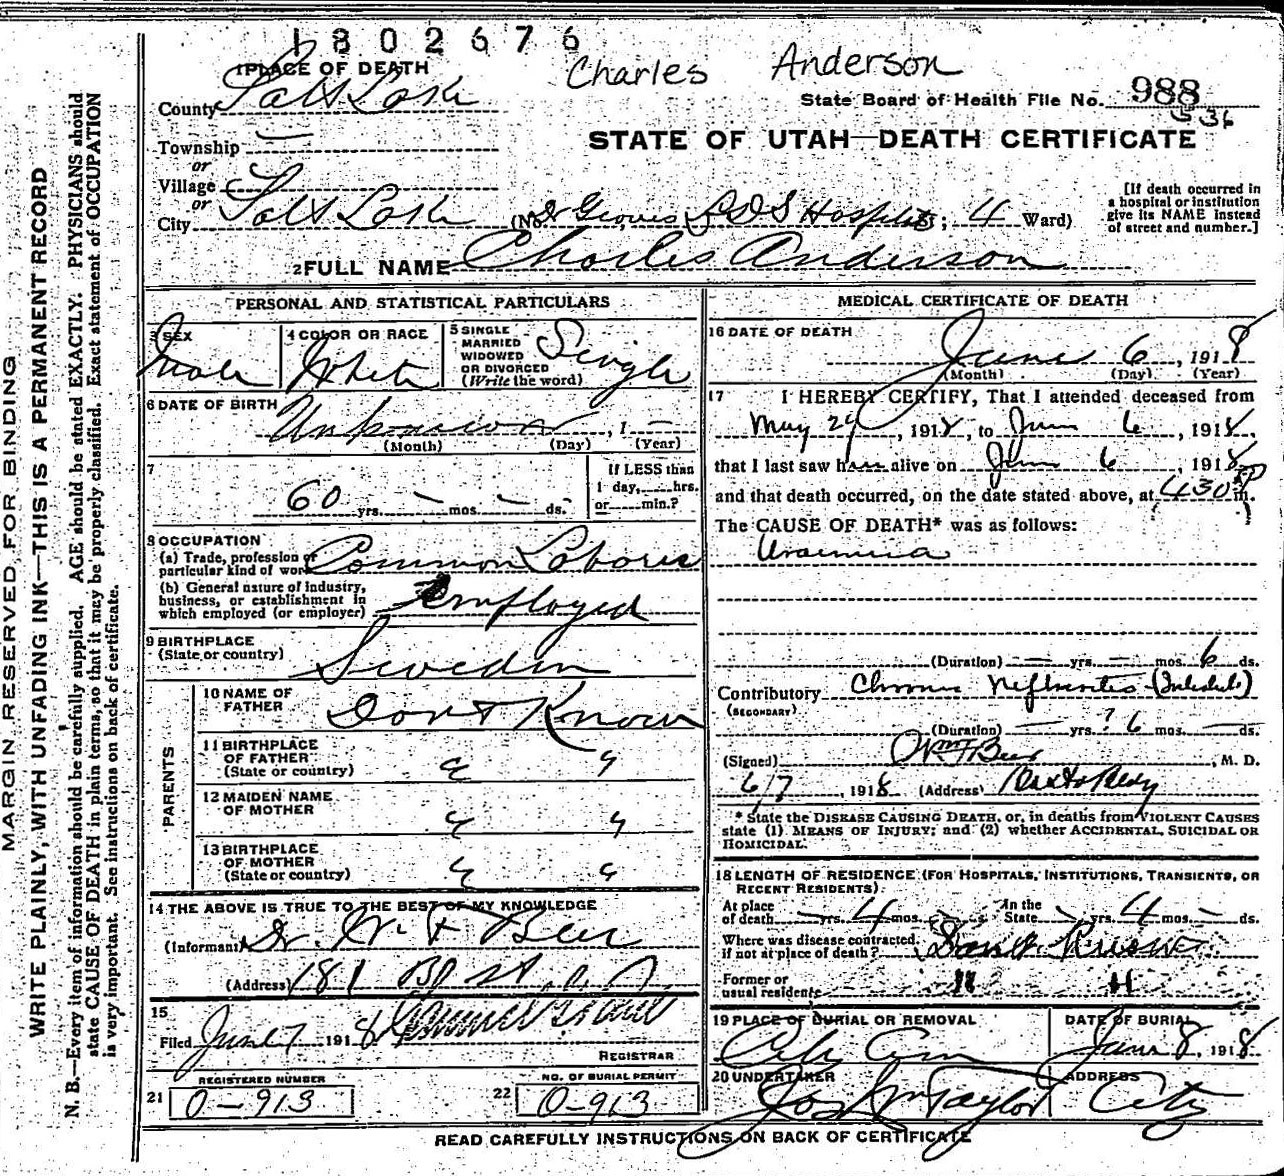 1802676
Charles Anderson
1 PLACE OF DEATH
County Salt Lake
State Board of Health File No. 988
536
Township —
STATE OF UTAH—DEATH CERTIFICATE
or
Village —
or
City Salt Lake (No. Dr Groves L D S Hospital; 4 Ward)
[If death occurred in
a hospital or institution
give its NAME instead
of street and number.]
2 FULL NAME Charles Anderson
PERSONAL AND STATISTICAL PARTICULARS
3 SEX
Male
4 COLOR OR RACE
White
5 SINGLE
MARRIED
WIDOWED
OR DIVORCED
(Write the word)
Single
6 DATE OF BIRTH
Unknown, 1 —
(Month) (Day) (Year)
7
60 yrs. — mos. — ds.
If LESS than
1 day, hrs.
or min.?
8 OCCUPATION
(a) Trade, profession or
particular kind of work Common Laborer
(b) General nature of industry,
business, or establishment in
which employed (or employer) Employed
9 BIRTHPLACE
(State or country) Sweden
PARENTS
10 NAME OF
FATHER Dont Know
11 BIRTHPLACE
OF FATHER
(State or country) " "
12 MAIDEN NAME
OF MOTHER " "
13 BIRTHPLACE
OF MOTHER
(State or country) " "
14 THE ABOVE IS TRUE TO THE BEST OF MY KNOWLEDGE
(Informant) Dr. W. F Beer
(Address) 181 B St
15
Filed June 7 1918
REGISTRAR
21 REGISTERED NUMBER
0-913
22 NO. OF BURIAL PERMIT
0-913
MEDICAL CERTIFICATE OF DEATH
16 DATE OF DEATH
June 6, 1918
(Month) (Day) (Year)
17 I HEREBY CERTIFY, That I attended deceased from
May 24, 1918, to June 6, 1918,
that I last saw him alive on June 6, 1918
and that death occurred, on the date stated above, at 430 P m.
The CAUSE OF DEATH* was as follows:
Uraemia
(Duration) — yrs. — mos. 6 ds.
Contributory Chronic Nephrites
(SECONDARY)
(Duration) — yrs. ? 6 mos. — ds.
(Signed) Wm F Beer, M. D.
6/7, 1918 (Address)
* State the DISEASE CAUSING DEATH, or, in deaths from VIOLENT CAUSES
state (1) MEANS OF INJURY; and (2) whether ACCIDENTAL, SUICIDAL OR
HOMICIDAL.
18 LENGTH OF RESIDENCE (FOR HOSPITALS, INSTITUTIONS, TRANSIENTS, OR
RECENT RESIDENTS).
At place
of death — yrs. 4 mos. ds. In the
State yrs. 4 mos. — ds.
Where was disease contracted,
if not at place of death? Dont Know
Former or
usual residence " "
19 PLACE OF BURIAL OR REMOVAL
City Cem
DATE OF BURIAL
June 8, 1918
20 UNDERTAKER
Jos Wm Taylor
ADDRESS
City
READ CAREFULLY INSTRUCTIONS ON BACK OF CERTIFICATE
MARGIN RESERVED FOR BINDING
WRITE PLAINLY, WITH UNFADING INK—THIS IS A PERMANENT RECORD
N. B.—Every item of information should be carefully supplied. AGE should be stated EXACTLY. PHYSICIANS should
state CAUSE OF DEATH in plain terms, so that it may be properly classified. Exact statement of OCCUPATION
is very important. See instructions on back of certificate.